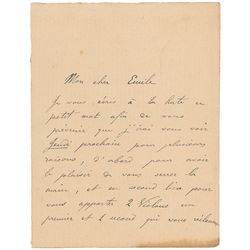 Mon cher Emile
Je vous écris à la hate ce
petit mot afin de vous
prévenir que j'irai vous voir
Jeudi prochain pour plusieurs
raisons, d'abord pour avoir
le plaisir de vous serrer la
main, et en second lieu pour
vous apporter 2 Violons un
premier et 1 second qui vous